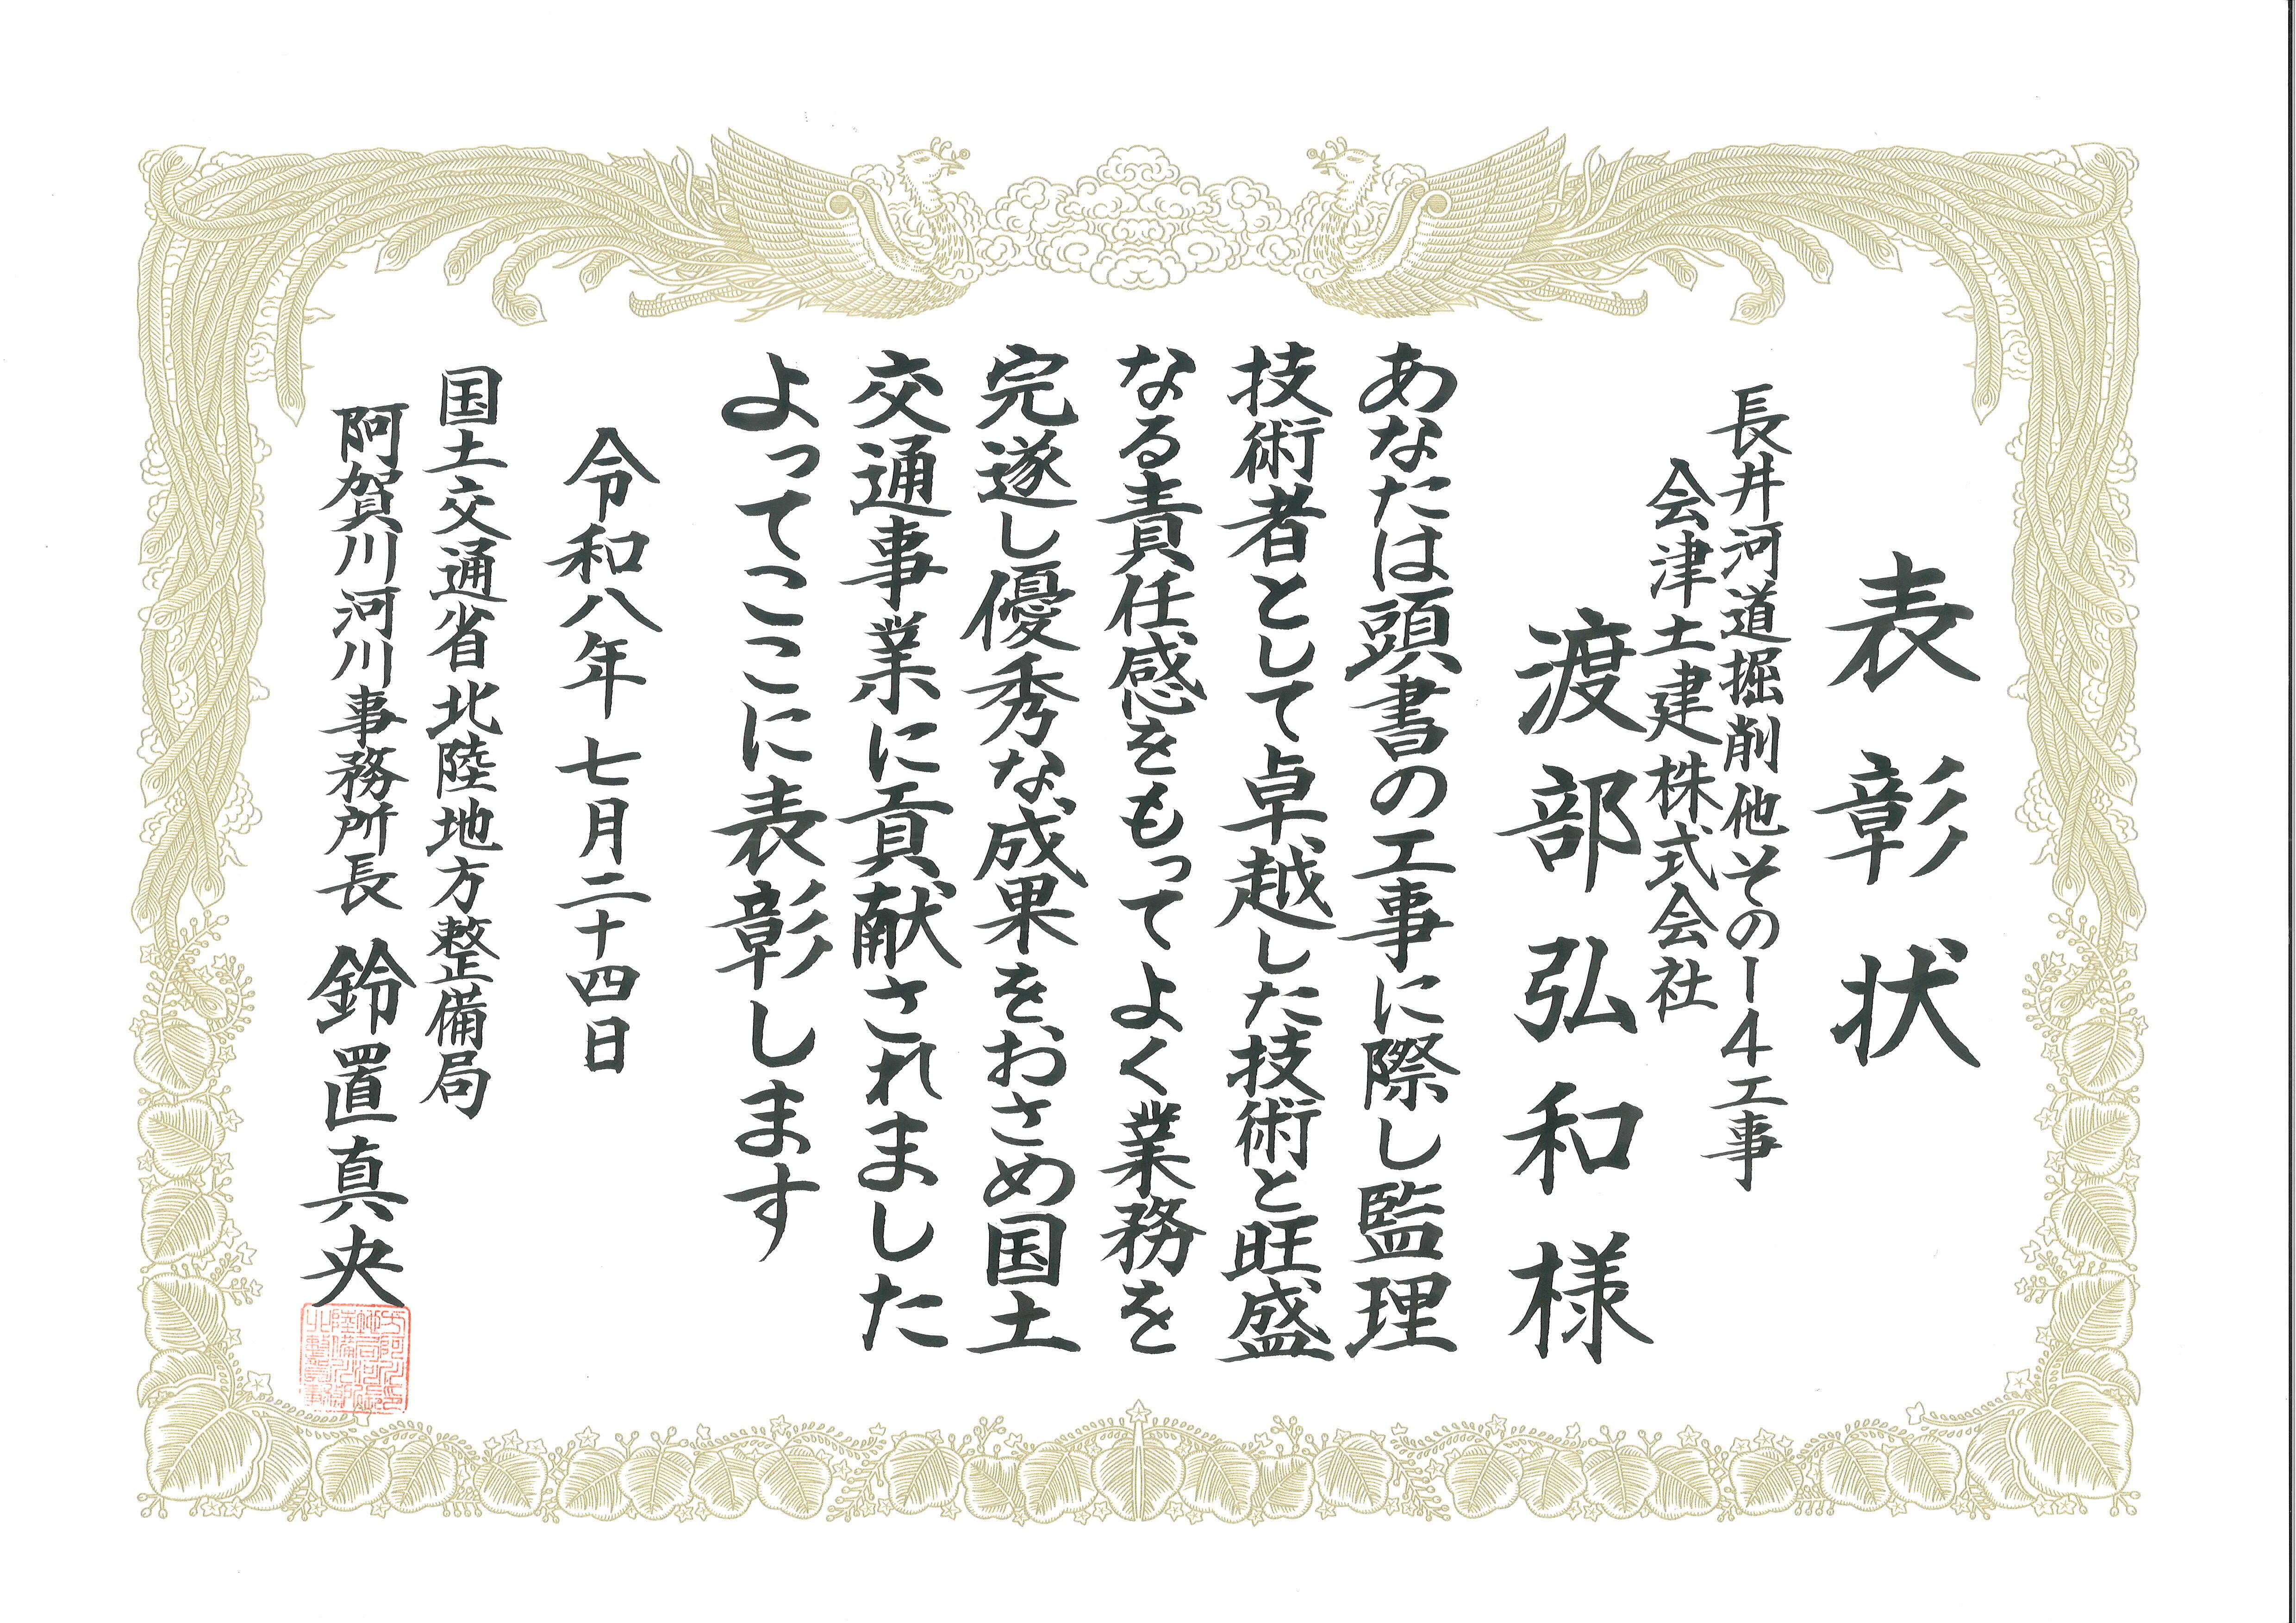 表彰状
長井河道掘削他その１４工事
会津土建株式会社
渡部弘和様
あなたは頭書の工事に際し監理
技術者として卓越した技術と旺盛
なる責任感をもってよく業務を
完遂し優秀な成果をおさめ国土
交通事業に貢献されました
よってここに表彰します
令和八年七月二十四日
国土交通省北陸地方整備局
阿賀川河川事務所長 鈴置真央